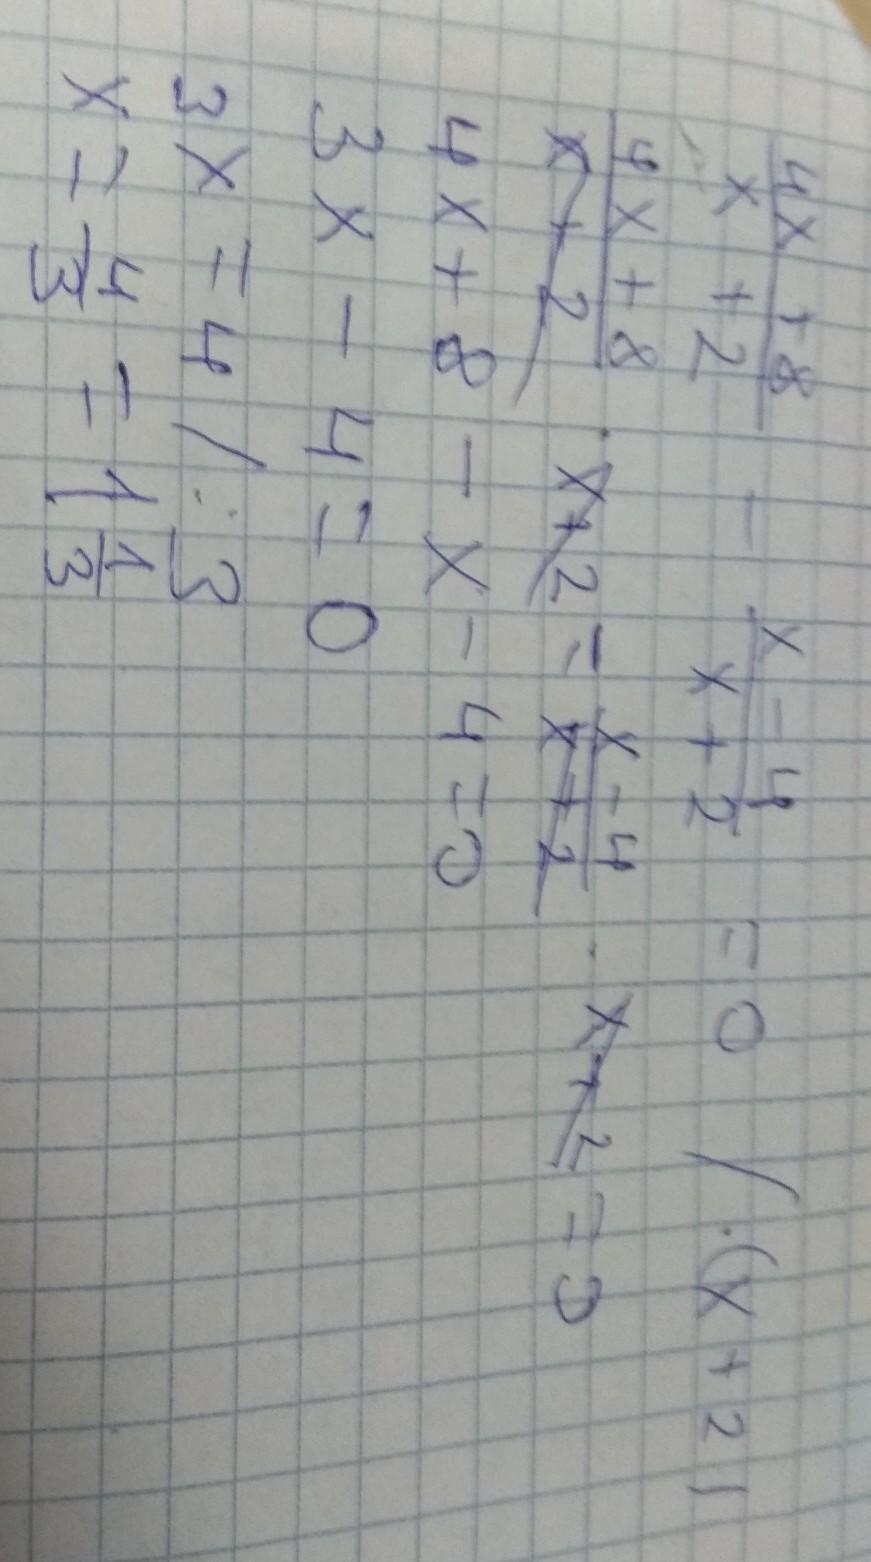 4x + 8 / x + 2 - x - 4 / x + 2 = 0 / · (x + 2)
4x + 8 / x + 2 · x + 2 = x - 4 / x + 2 · x + 2 = 0
4x + 8 - x - 4 = 0
3x - 4 = 0
3x = 4 / : 3
x = 4/3 = 1 1/3